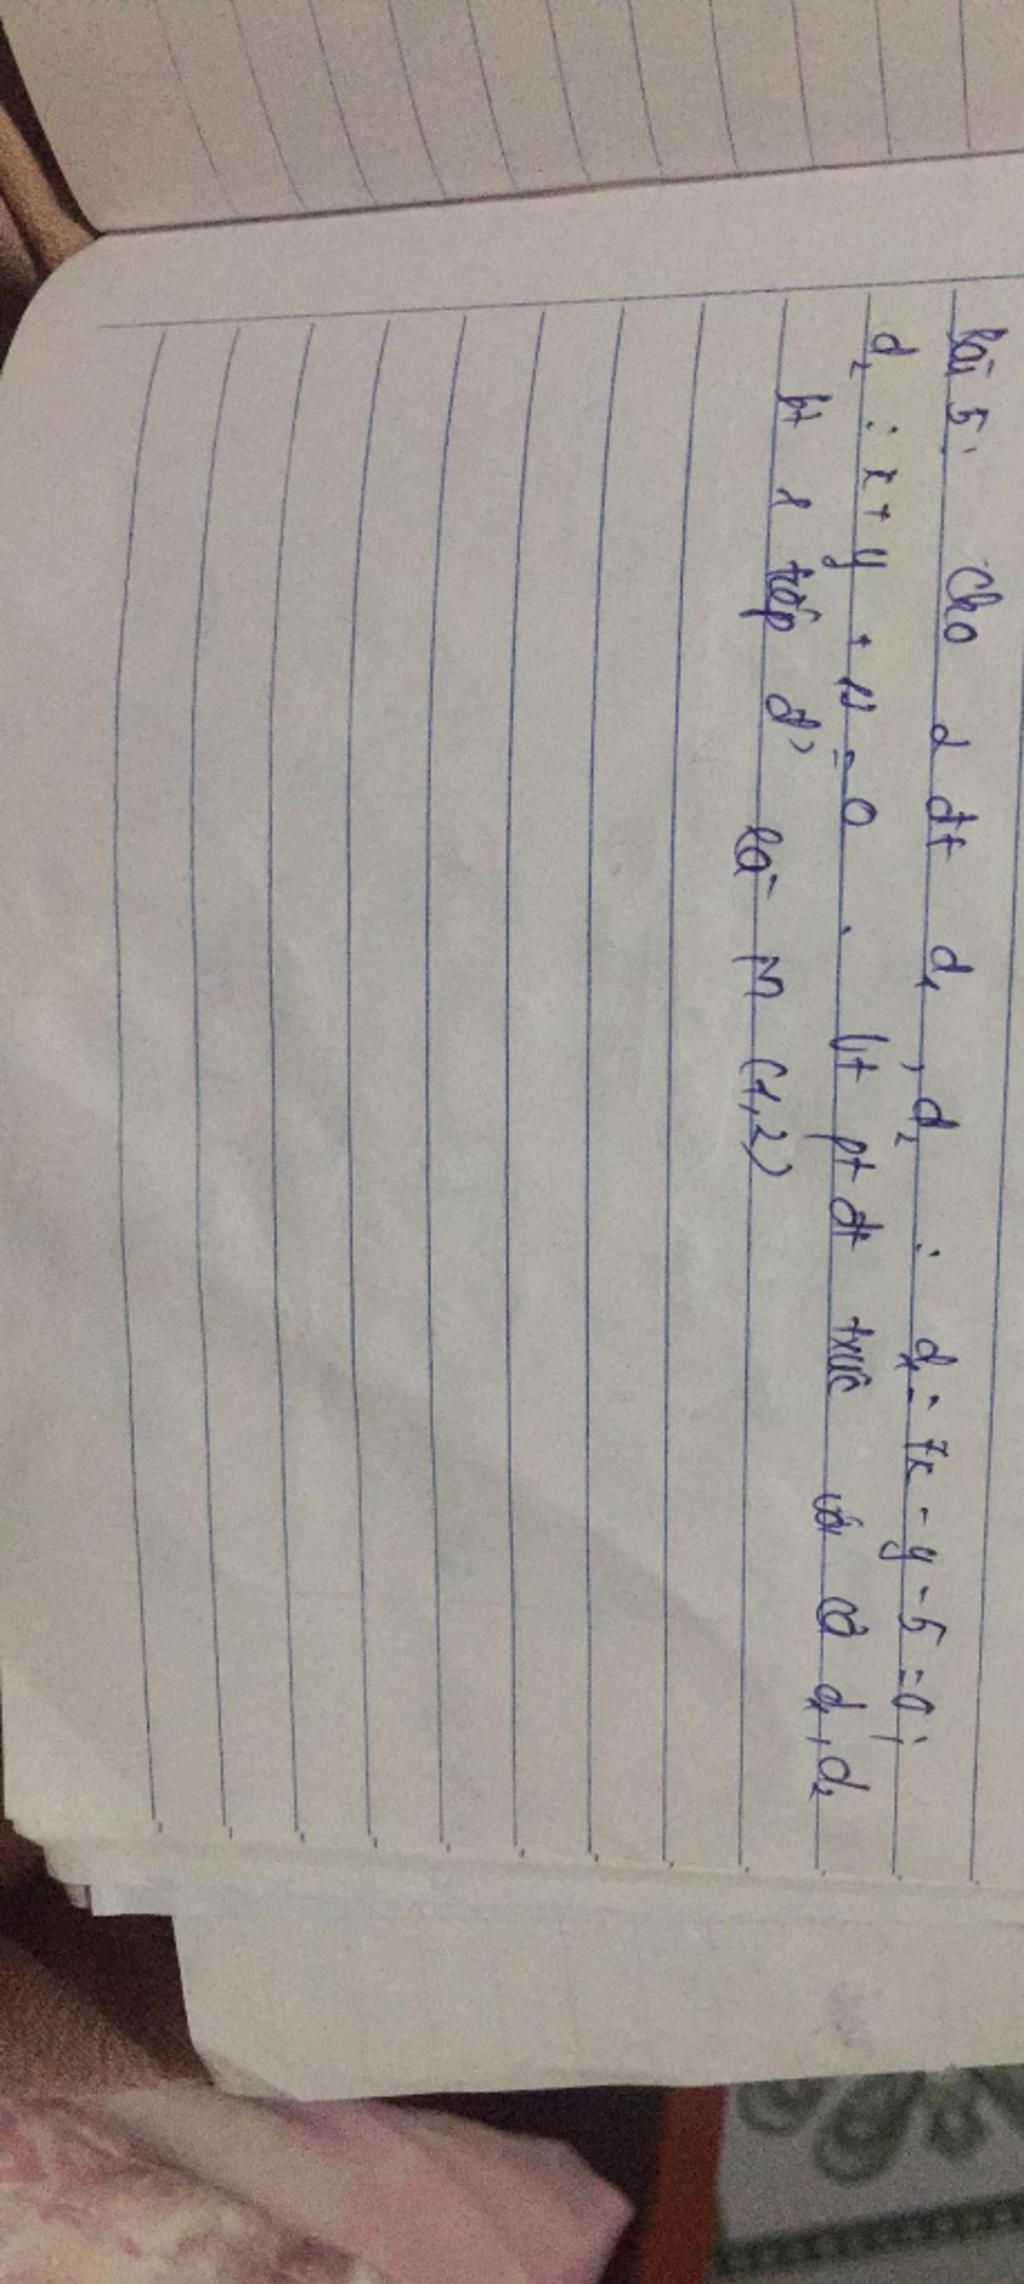 Bài 5: Cho 2 đt d₁, d₂ : d₁: 7x - y - 5 = 0;
d₂ : x + y + 13 = 0. Vt pt đt txúc với cả d₁, d₂
bt 1 tiếp đ' là M (1,2)